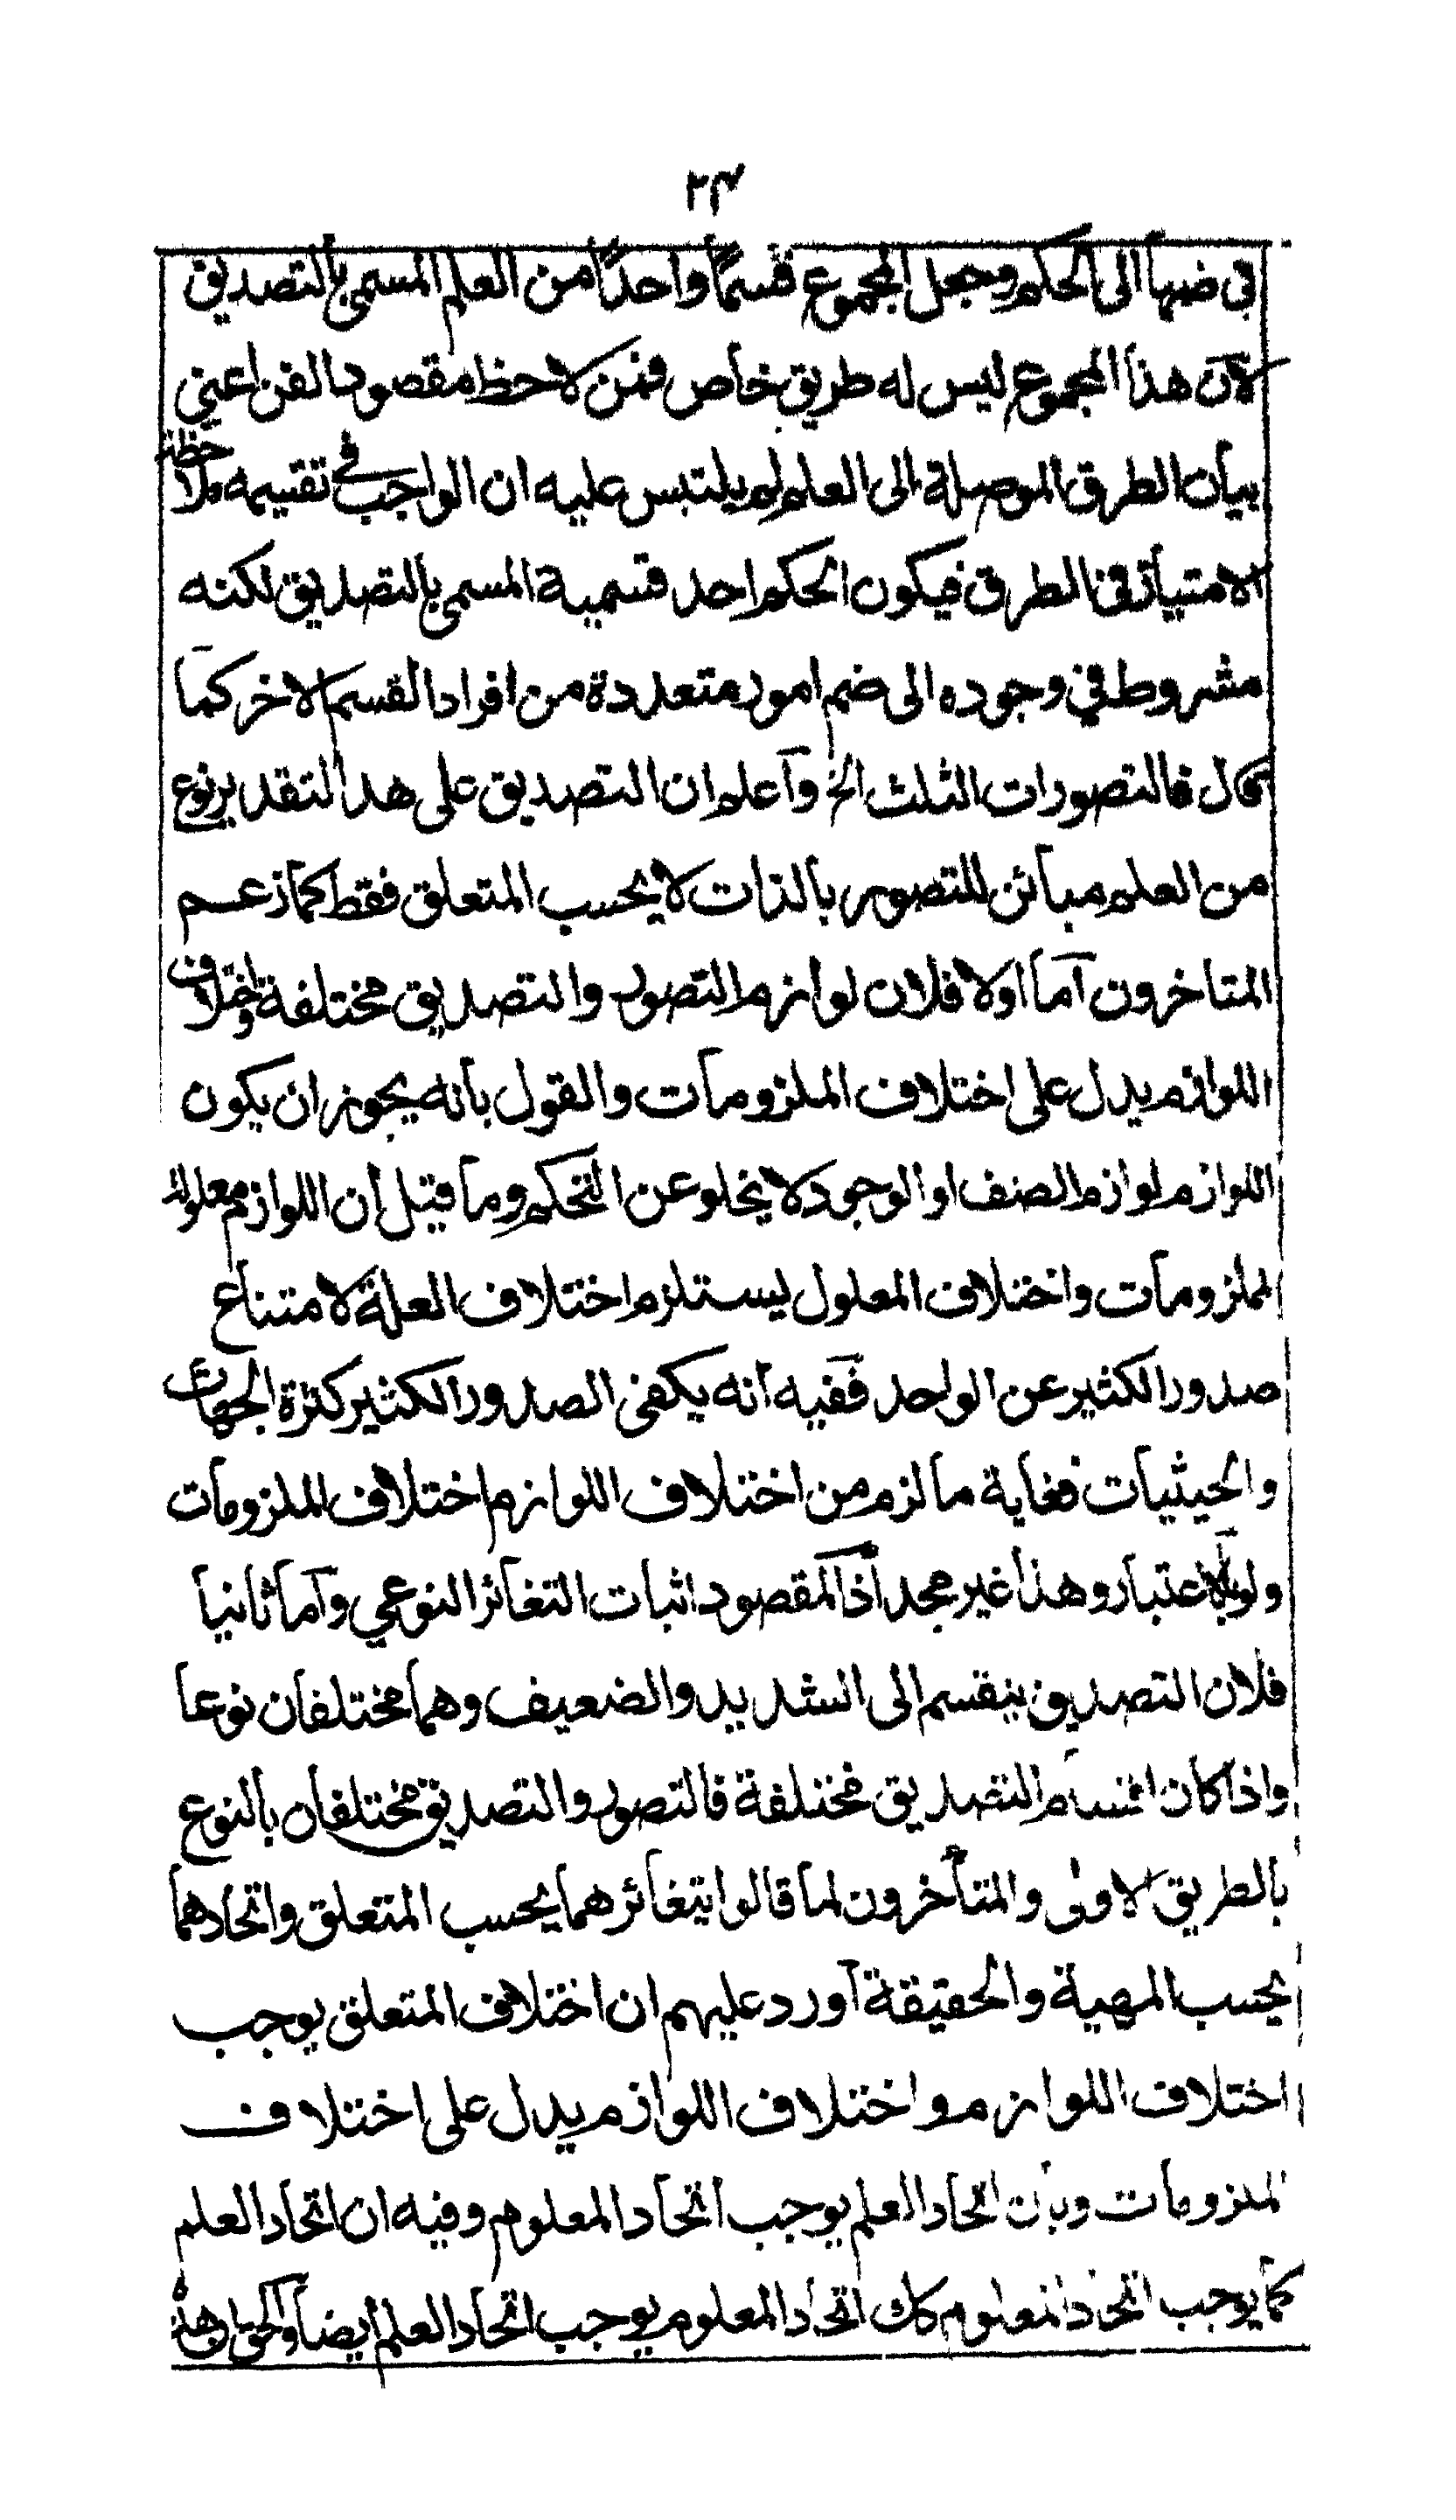 ٢٣
فى ضمها الى الحكم وجعل المجموع قسمًا واحدًا من العلم المسمى بالتصديق
لان هذا المجموع ليس له طريق خاص فمن لاحظ مقصود الفن اعنى
بيان الطرق الموصلة الى العلم لم يلتبس عليه ان الواجب فى تقسيمه ملاحظة
الامتياز فى الطرق فيكون الحكم احد قسميه المسمى بالتصديق لكنه
مشروط فى وجوده الى ضم امور متعددة من افراد القسم الاخر كما
قال فالتصورات الثلث الخ واعلم ان التصديق على هذا التقدير نوع
من العلم مبائن للتصور بالذات لا بحسب المتعلق فقط كما زعم
المتاخرون اما اولا فلان لوازم التصور والتصديق مختلفة واختلاف
اللوازم يدل على اختلاف الملزومات والقول بانه يجوز ان يكون
اللوازم لوازم الصنف او الوجود لا يخلو عن التحكم وما قيل ان اللوازم معلولة
للملزومات واختلاف المعلول يستلزم اختلاف العلة لامتناع
صدور الكثير عن الواحد ففيه انه يكفى الصدور الكثير كثرة الجهات
والحيثيات فغاية ما لزم من اختلاف اللوازم اختلاف الملزومات
ولو بالاعتبار وهذا غير مجد اذ المقصود اثبات التغائر النوعي واما ثانيا
فلان التصديق ينقسم الى الشديد والضعيف وهما مختلفان نوعا
واذا كان اقسام التصديق مختلفة فالتصور والتصديق مختلفان بالنوع
بالطريق الاولى والمتأخرون لما قالوا بتغائرهما بحسب المتعلق واتحادهما
بحسب المهية والحقيقة اورد عليهم ان اختلاف المتعلق يوجب
اختلاف اللوازم واختلاف اللوازم يدل على اختلاف
لملزومات وبان اتحاد العلم يوجب اتحاد المعلوم وفيه ان اتحاد العلم
كما يوجب اتحاد المعلوم كك اتحاد المعلوم يوجب اتحاد العلم ايضا والحق ان